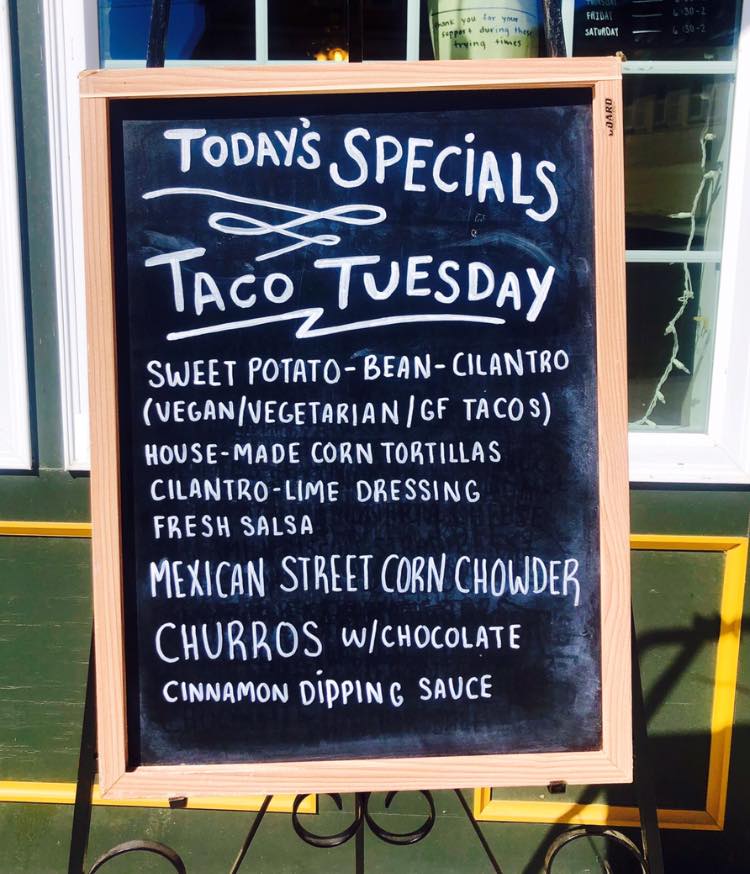 thank you for your
support during these
trying times
FRIDAY 6:30-2
SATURDAY 6:30-2
BOARD
TODAY'S SPECIALS
TACO TUESDAY
SWEET POTATO-BEAN-CILANTRO
(VEGAN/VEGETARIAN/GF TACOS)
HOUSE-MADE CORN TORTILLAS
CILANTRO-LIME DRESSING
FRESH SALSA
MEXICAN STREET CORN CHOWDER
CHURROS W/CHOCOLATE
CINNAMON DIPPING SAUCE